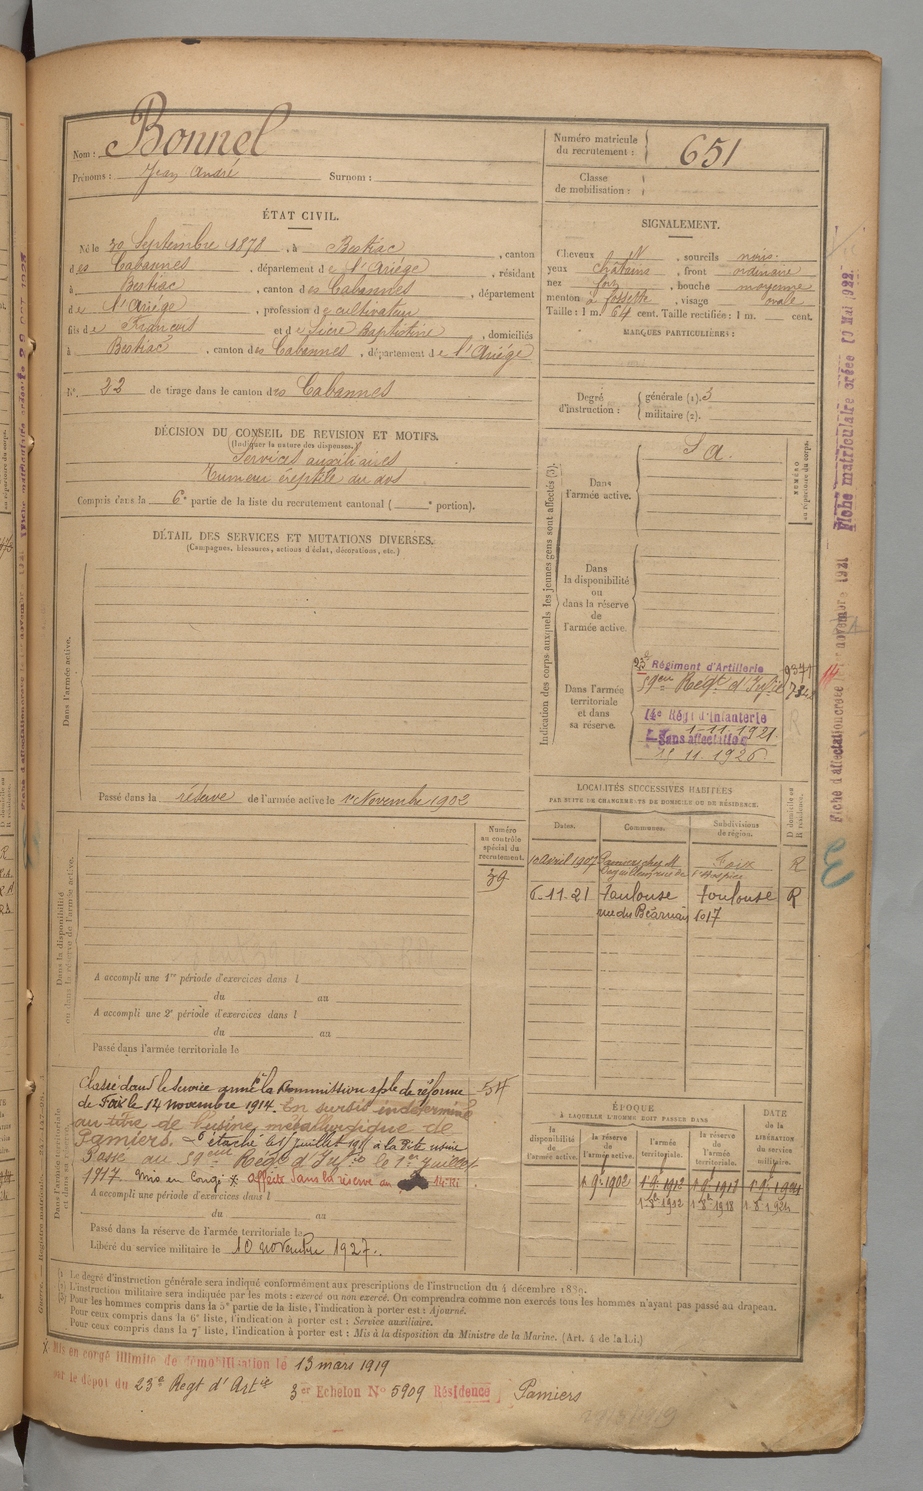 Nom : Bonnel
Prénoms : Jean André Surnom :
Numéro matricule du recrutement : 651
Classe de mobilisation :
ÉTAT CIVIL.
Né le 30 Septembre 1878, à Bestiac, canton
des Cabannes, département de l'Ariége, résidant
à Bestiac, canton des Cabannes, département
de l'Ariége, profession de cultivateur
fils de François et de Baptistine, domiciliés
à Bestiac, canton des Cabannes, département de l'Ariége
N° 22 de tirage dans le canton des Cabannes
SIGNALEMENT.
Cheveux N, sourcils noirs
yeux châtains, front ordinaire
nez fort, bouche moyenne
menton à fossette, visage ovale
Taille : 1 m. 64 cent. Taille rectifiée : 1 m. cent.
MARQUES PARTICULIÈRES :
Degré d'instruction : générale (1). 3
militaire (2).
DÉCISION DU CONSEIL DE REVISION ET MOTIFS.
(Indiquer la nature des dispenses.)
Services auxiliaires
Tumeur au dos
Compris dans la 6e partie de la liste du recrutement cantonal ( e portion).
DÉTAIL DES SERVICES ET MUTATIONS DIVERSES.
(Campagnes, blessures, actions d'éclat, décorations, etc.)
Dans l'armée active.
Passé dans la réserve de l'armée active le 1er Novembre 1902
Indication des corps auxquels les jeunes gens sont affectés (3).
NUMÉRO au répertoire du corps.
Dans l'armée active. S a.
Dans
la disponibilité
ou
dans la réserve
de
l'armée active.
Dans l'armée
territoriale
et dans
sa réserve.
23e Régiment d'Artillerie
59eme Regt d'Infie
14e Régt d'Infanterie
1-11.1921
Sans affectation
11.1926
LOCALITÉS SUCCESSIVES HABITÉES
PAR SUITE DE CHANGEMENTS DE DOMICILE OU DE RÉSIDENCE.
Dates. Communes. Subdivisions de région. D domicile ou R résidence.
1er Avril 1907 Pamiers chez M Foix R
6-11.21 Toulouse Toulouse R
rue du Béarnais 1017
Numéro au contrôle spécial du recrutement.
39
Dans la disponibilité ou dans la réserve de l'armée active.
A accompli une 1re période d'exercices dans l
du au
A accompli une 2e période d'exercices dans l
du au
Passé dans l'armée territoriale le
Classé dans le service armé la Commission sple de réforme
de Foix le 14 novembre 1914. En sursis indéterminé
au titre de l'usine métallurgique de
Pamiers. Détaché le 1er Juillet à la dite usine
Passé au 59eme Regt d'Infie le 1er Juillet
1917 Mis en Congé x affecté dans la réserve au 14 RI
A accompli une période d'exercices dans l
du au
Passé dans la réserve de l'armée territoriale le
Libéré du service militaire le 10 novembre 1927.
ÉPOQUE
À LAQUELLE L'HOMME DOIT PASSER DANS
DATE DE LA LIBÉRATION DU SERVICE MILITAIRE.
la disponibilité de l'armée active. la réserve de l'armée active. l'armée territoriale. la réserve de l'armée territoriale.
1. 9bre 1902 1. 9. 1912 1. 9. 1918 1. 9. 1924
1-8bre 1912 1-8bre 1918 1. 8bre 1924
(1) Le degré d'instruction générale sera indiqué conformément aux prescriptions de l'instruction du 4 décembre 1889.
(2) L'instruction militaire sera indiquée par les mots : exercé ou non exercé. On comprendra comme non exercés tous les hommes n'ayant pas passé au drapeau.
(3) Pour les hommes compris dans la 5e partie de la liste, l'indication à porter est : Ajourné.
Pour ceux compris dans la 6e liste, l'indication à porter est : Service auxiliaire.
Pour ceux compris dans la 7e liste, l'indication à porter est : Mis à la disposition du Ministre de la Marine. (Art. 4 de la loi.)
x Mis en congé illimité de démobilisation le 13 mars 1919
par le dépôt du 23e Regt d'Artie 3er Echelon N° 5909 Résidence Pamiers
Fiche matriculaire créée 10 Mai 1922.